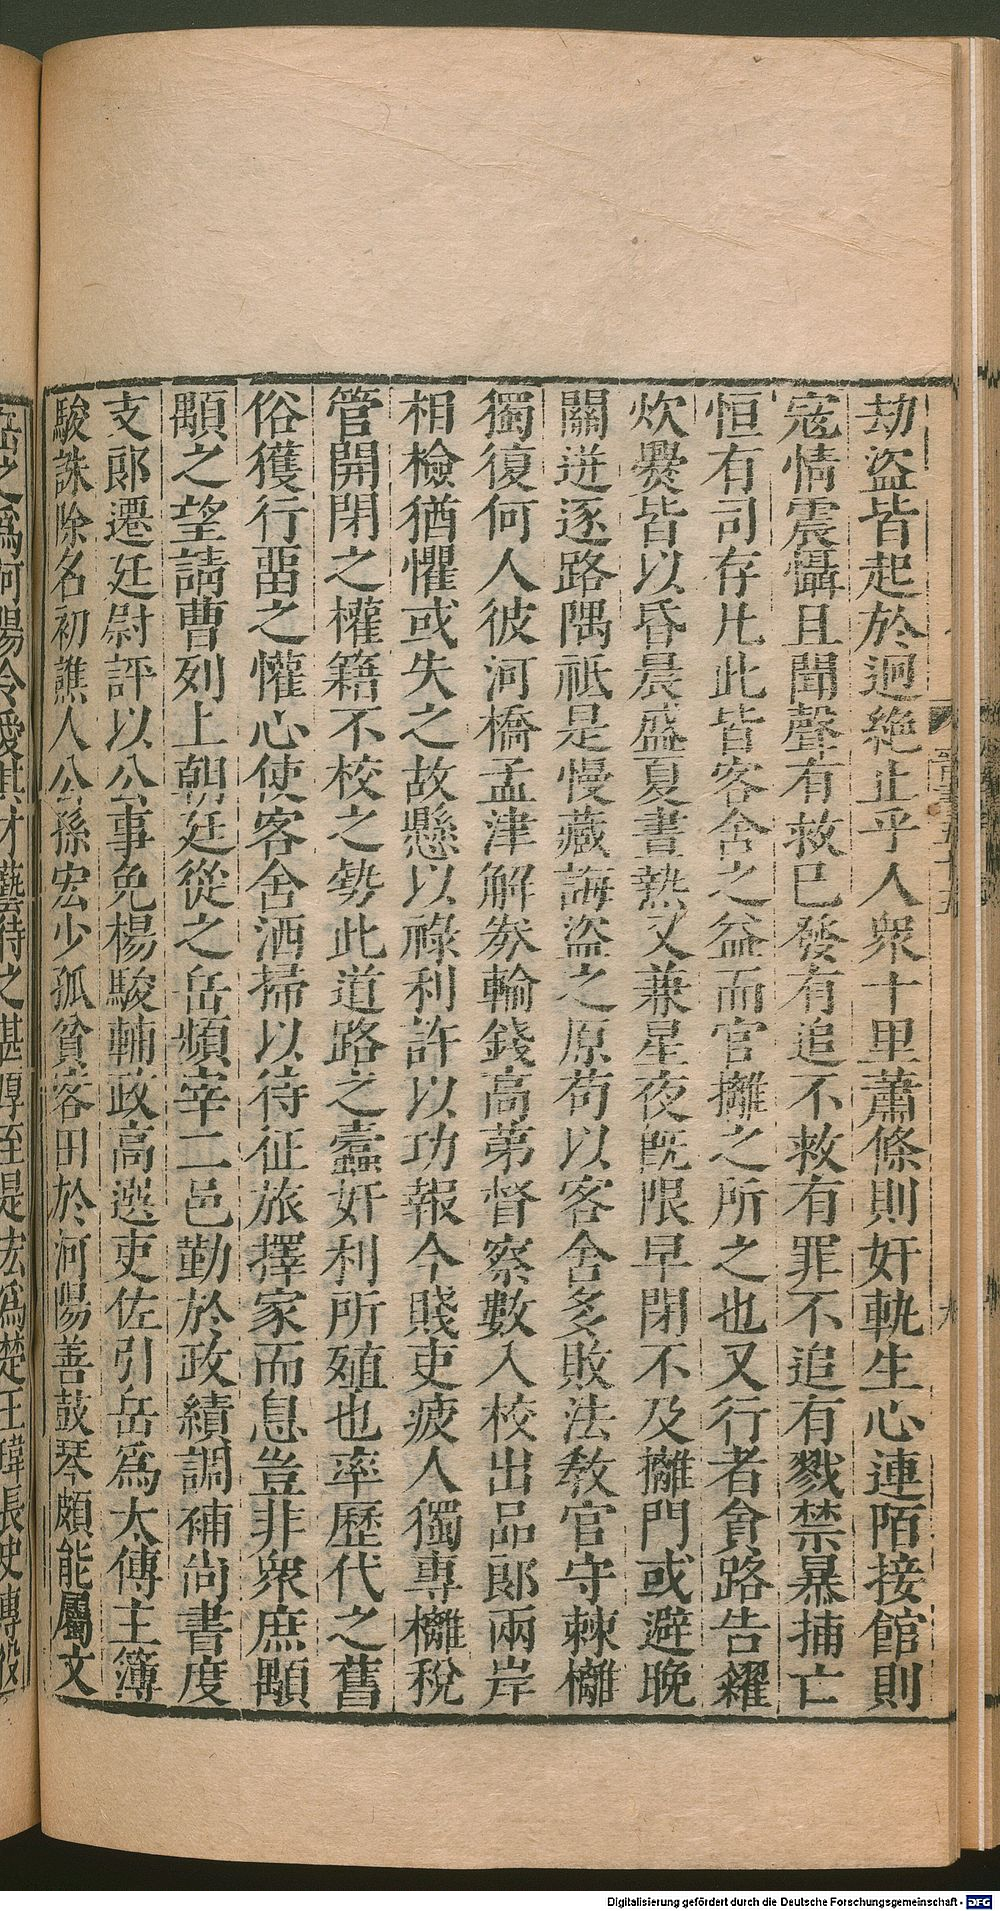 劫盜皆起於迥絕止乎人衆十里蕭條則奸軌生心連陌接館則
寇情震懾且聞聲有救已發有追不救有罪不追有戮禁暴捕亡
恒有司存凡此皆客舍之益而官㩥之所乏也又行者貪路告糴
炊爨皆以昏晨盛夏晝熱又兼星夜旣限早閉不及㩥門或避晚
關迸逐路隅祇是慢藏誨盜之原苟以客舍多敗法敎官守棘㰚
獨復何人彼河橋孟津解劵輸錢高第督察數入校出品郞兩岸
相檢猶懼或失之故懸以祿利許以功報今賤吏疲人獨專㰚稅
管開閉之權籍不校之勢此道路之蠹奸利所殖也率歷代之舊
俗獲行畱之懽心使客舍洒掃以待征旅擇家而息豈非衆庶顒
顒之望請曹列上朝廷從之岳頻宰二邑勤於政績調補尙書度
支郞遷廷尉評以公事免楊駿輔政高選吏佐引岳爲太傅主簿
駿誅除名初譙人公孫宏少孤貧客田於河陽善鼓琴頗能屬文
岳之爲河陽令愛其才藝待之甚厚至是宏爲楚王瑋長史專殺
Digitalisierung gefördert durch die Deutsche Forschungsgemeinschaft - DFG